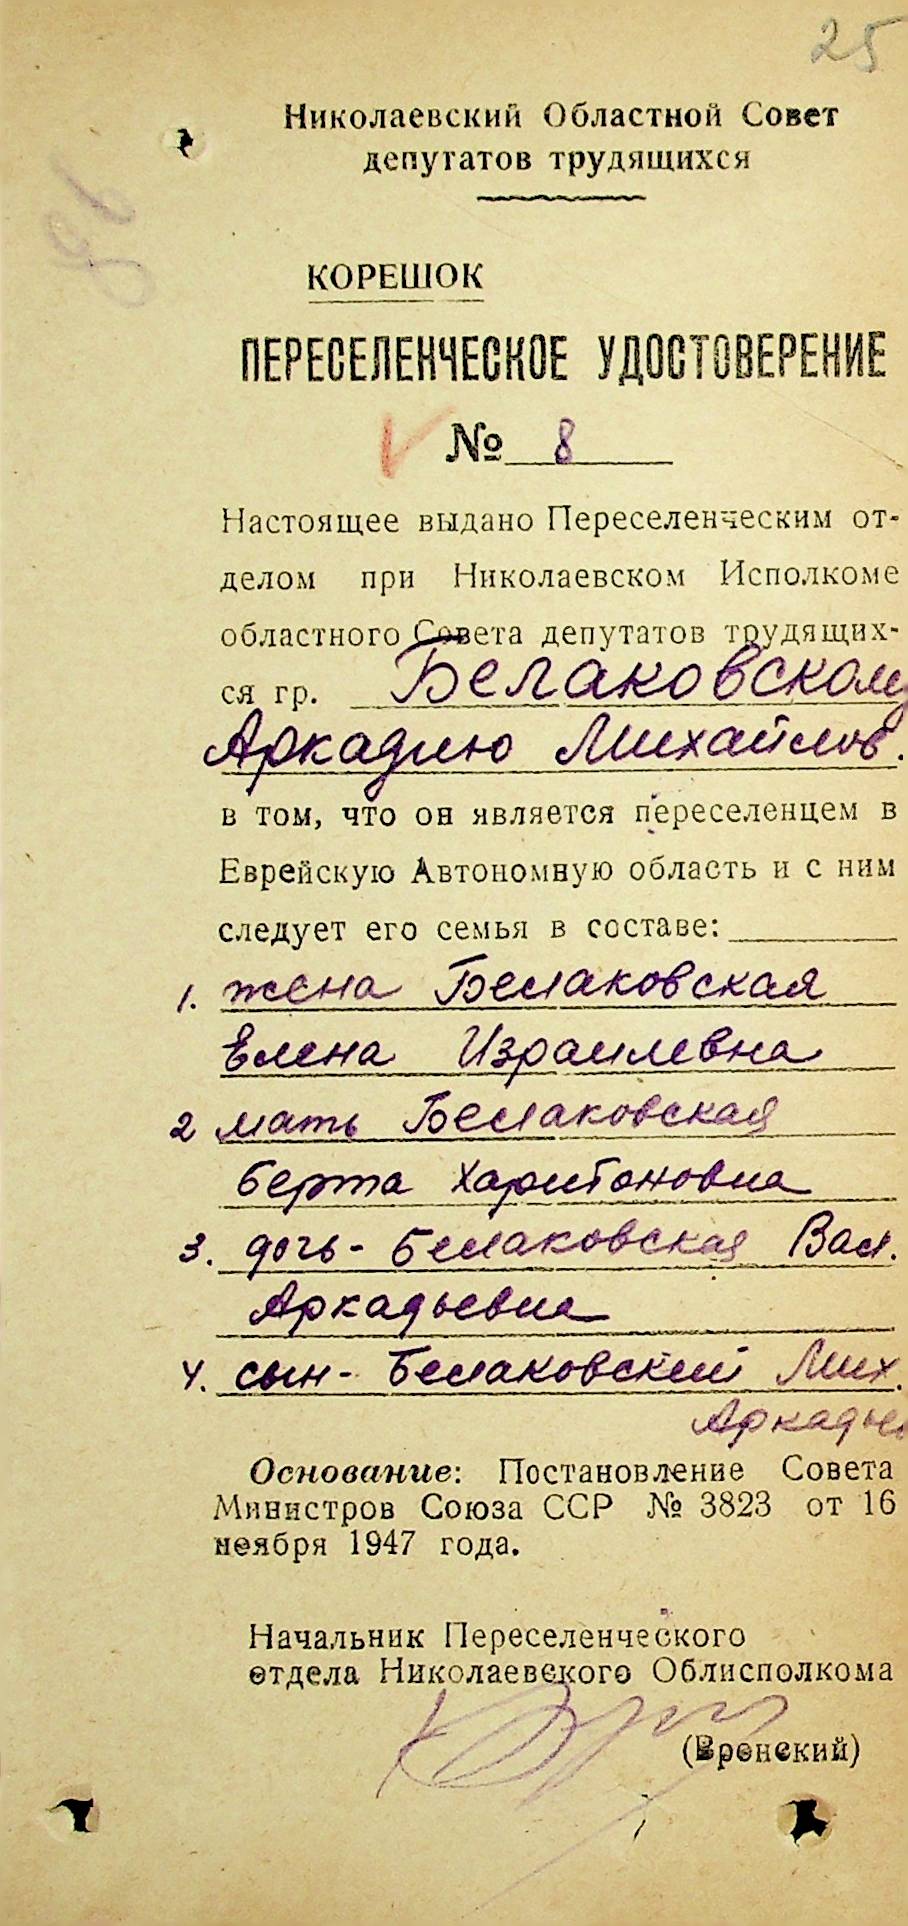 25
Николаевский Областной Совет
депутатов трудящихся
КОРЕШОК
ПЕРЕСЕЛЕНЧЕСКОЕ УДОСТОВЕРЕНИЕ
№ 8
Настоящее выдано Переселенческим от-
делом при Николаевском Исполкоме
областного Совета депутатов трудящих-
ся гр. Белаковскому
Аркадию Михайлов.
в том, что он является переселенцем в
Еврейскую Автономную область и с ним
следует его семья в составе:
1. жена Белаковская
Елена Израилевна
2 мать Белаковская
Берта Харитоновна
3. дочь - Белаковская Вал.
Аркадьевна
4. сын - Белаковский Мих.
Аркадьев
Основание: Постановление Совета
Министров Союза ССР № 3823 от 16
ноября 1947 года.
Начальник Переселенческого
отдела Николаевского Облисполкома
(Вронский)